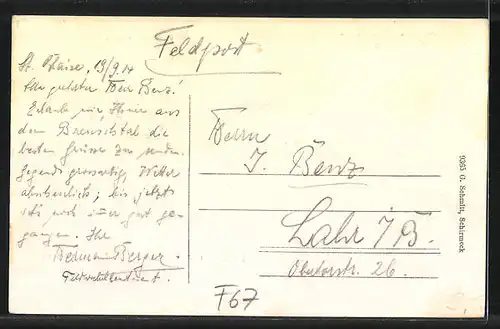 Feldpost
St. Blaise, 19/9.14
Sehr geehrter Herr Benz!
Erlaube mir, Ihnen aus
dem Breuschtal die
besten Grüsse zu senden.
Gegend grossartig, Wetter
abscheulich; bis jetzt
ist's noch immer gut ge-
gangen. Ihr
Hermann Berger.
Herrn
J. Benz
Lahr i/B.
Oberlorstr. 26.
F67
9355 G. Schmitt, Schirmeck